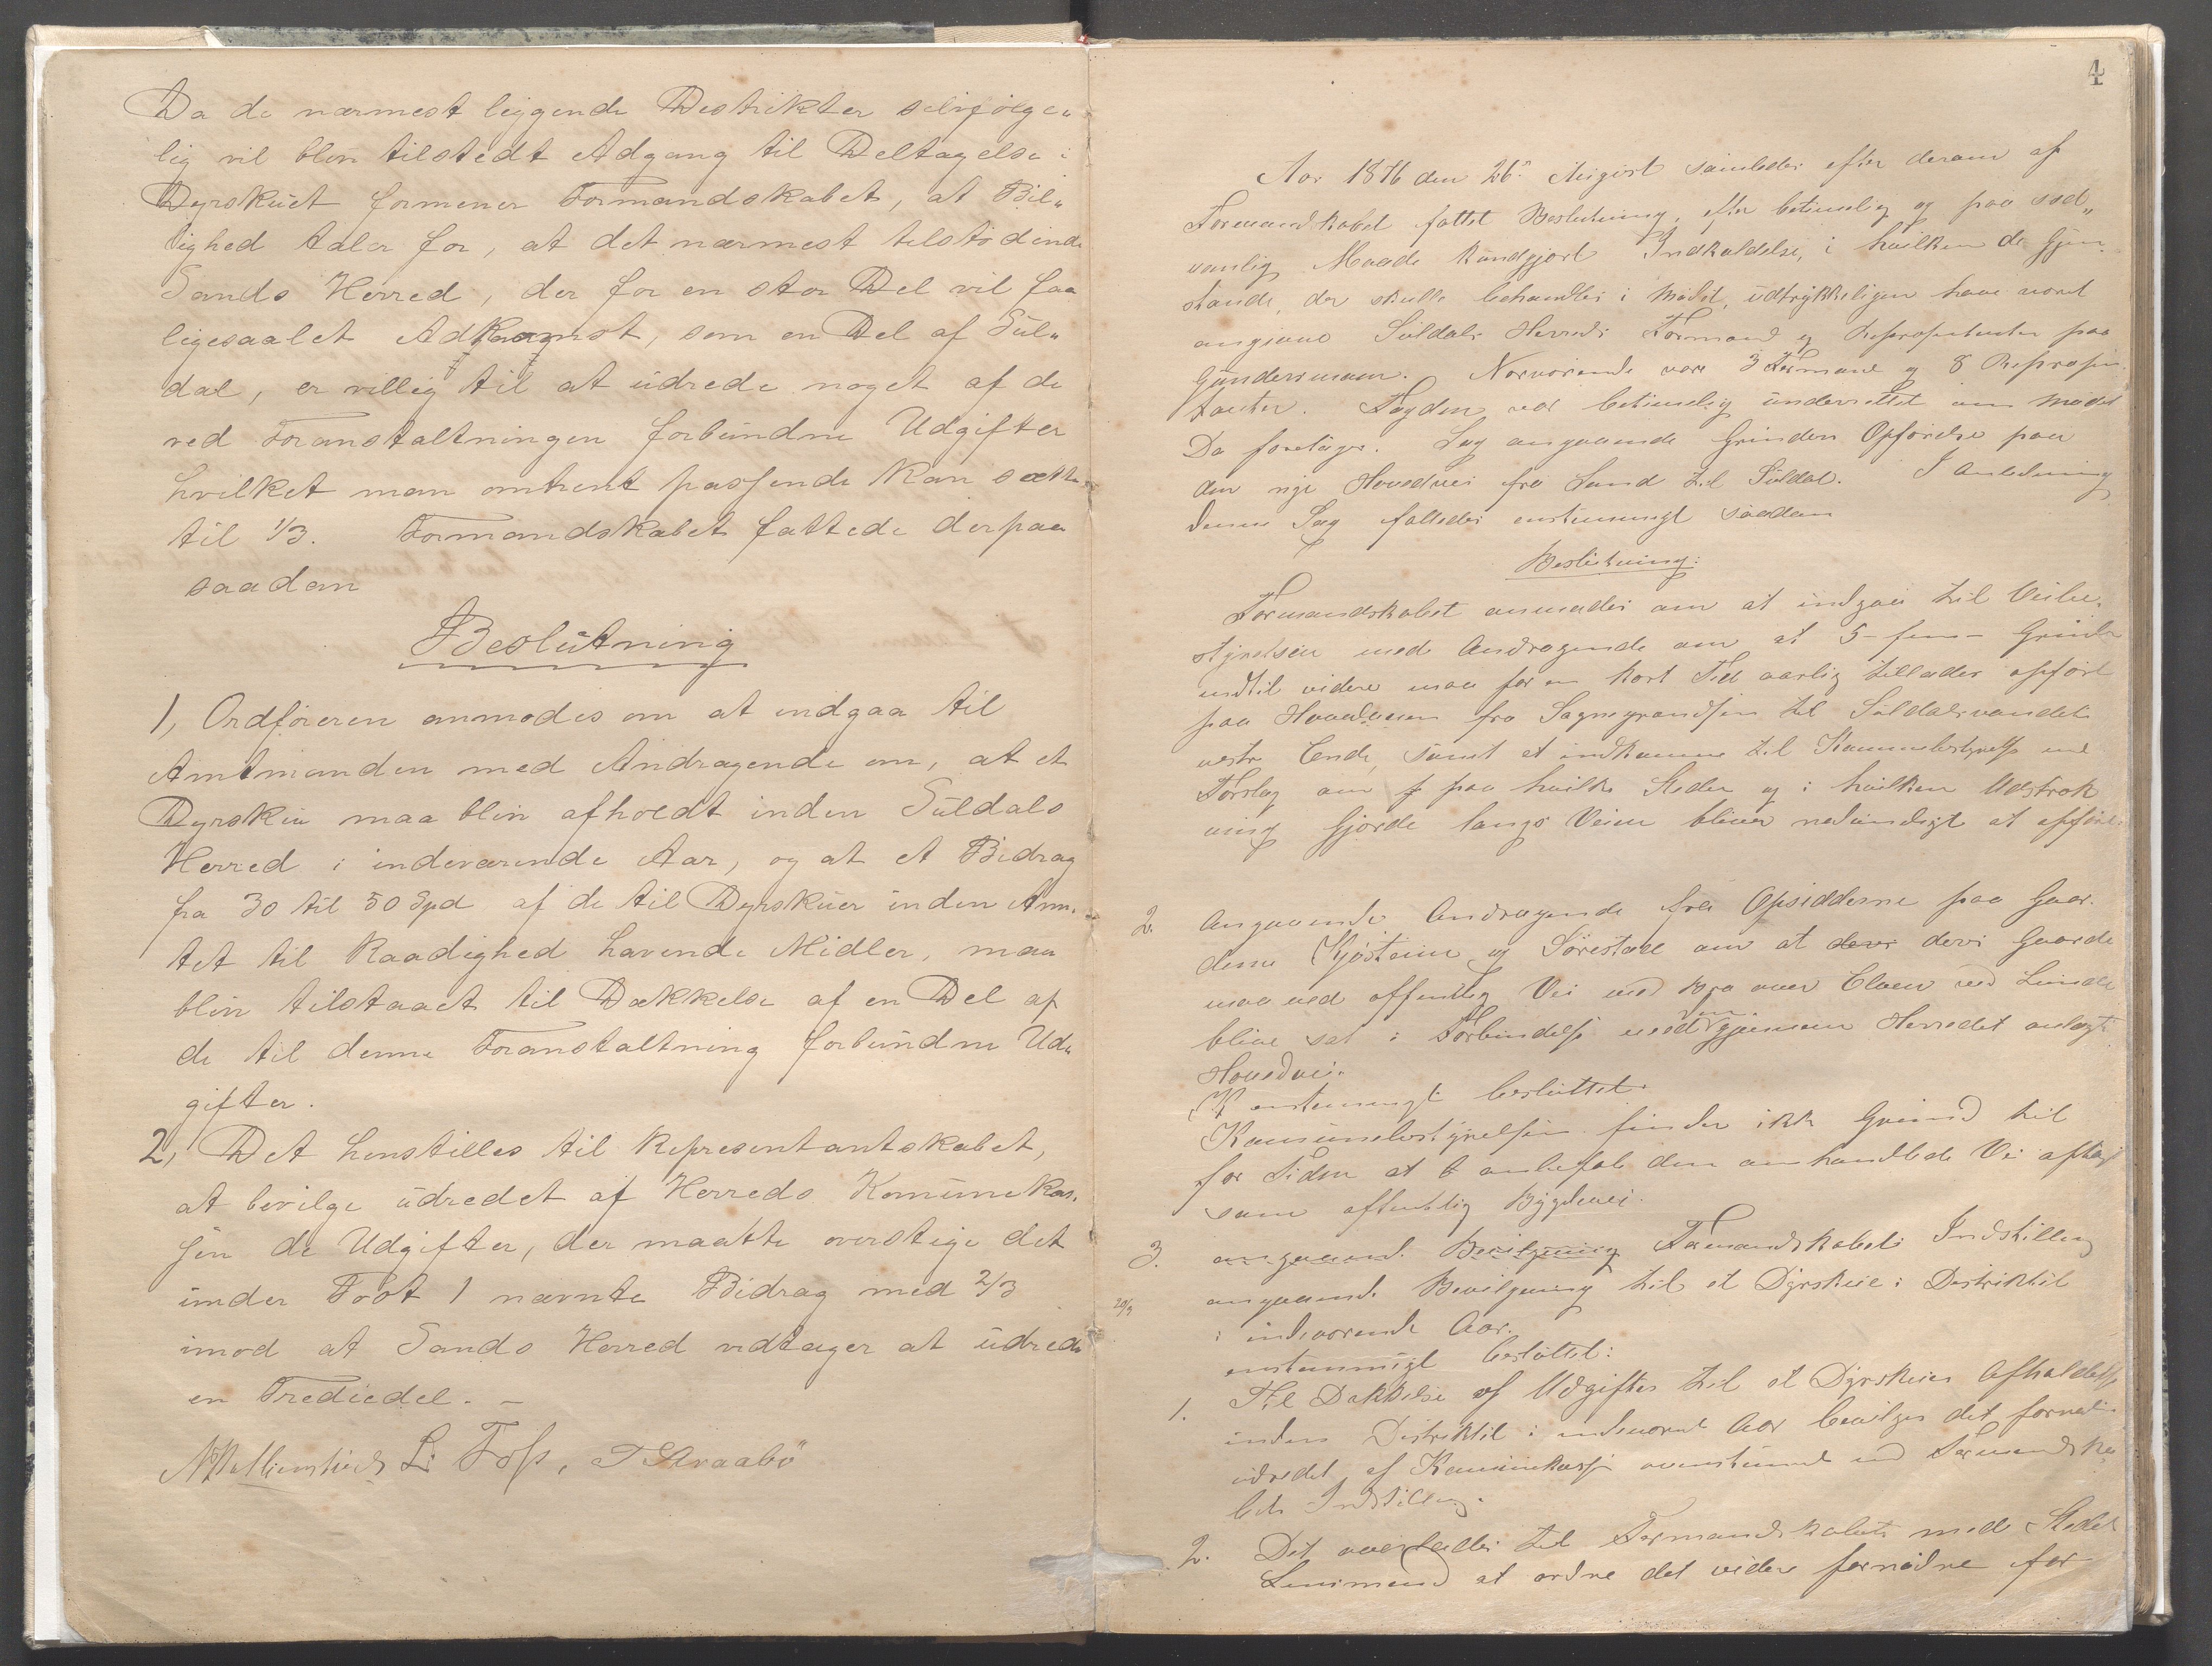 Da de nærmest liggende Destrikter selvfölge„
lig vil blive tilstedt Adgang til Deltagelse i
Dyrskuet formener Formandskabet, at Bil„
lighed taler for, at det nærmest tilstödende
Sands Herred, der for en stor Del vil faa
ligesaalet Adkomst, som en Del af Sul„
dal, er villig til at udrede noget af de
ved Foranstaltningen forbundne Udgifter
hvilket man omtrent passende kan sætte
til 1/3. Formandskabet fattede derpaa
saadan
Beslutning
1, Ordföreren anmodes om at indgaa til
Amtmanden med Andragende om, at et
Dyrskue maa bliv afholdt inden Suldals
Herred i indeværende Aar, og at et Bidrag
fra 30 til 50 Spd af de til Dyrskuer inden Am„
tet til Raadighed havende Midler, maa
bliv tilstaaet til Dækkelse af en Del af
de til denne Foranstaltning forbundne Ud„
gifter.
2, Det henstilles til Representantskabet,
at bevilge udredet af Herreds Komunekas„
sen de Udgifter, der maatte overstige det
under Post 1 nævnte Bidrag med 2/3
imod at Sands Herred vedtager at udrede
en Trediedel. —
L. Foss, T Braabö
4
Aar 1876 den 26de August samledes efter derom af
Formandskabet fattet Beslutning, efter betimelig og paa sæd„
vanlig Maade kundgjort Indkaldelse, i hvilken de Gjen„
stande, der skulle behandles i Mødet, udtrykkeligen have været
angivne Suldals Herreds Formænd og Repræsentanter paa
Nærværende vare 3 Formænd og 8 Repræsen
tanter. Fogden var betimelig underrettet om Mødet
Da foretages. Sag angaaende Grinders Opførelse paa
den nye Hovedvei fra Sand til Suldal. I Anledning
denne Sag fattedes enstemmigt saadan
Beslutning:
Formandskabet anmodes om at indgaa til Veibe„
styrelsen med Andragende om at 5 - fem - Grinde
indtil videre maa for en kort Tid aarlig tillades opført
paa Hovedveien fra til Suldalsvandets
vestre Ende, samt at indkomme til Kommunebestyrelse med
Forslag om paa hvilke Steder og i hvilken Udstræk
ning Gjerde langs Veien bliver nødvendigt at opføre.
2. Angaaende Andragende fra Opsidderne paa Gaar„
dene Kjøsteim og om at deres Gaarde
maa ved offentlig Vei med Bro over Elven ved Linde
blive sat i Forbindelse med den gjennem Herredet anlagt
Hovedvei.
enstemmigt besluttet.
Kommunebestyrelsen finder ikke Grund til
for Tiden at anbefale den omhandlede Vei optag
som offentlig Bygdevei.
3. angaaend. Bevilgning Formandskabets Indstilling
20/9 angaaende Bevilgning til et Dyrskue i Distriktet
i indeværende Aar.
enstemmigt besluttet:
1. Til Dækkelse af Udgifter til et Dyrskues Afholdelse
inden Distriktet i indeværende Aar bevilges det fornødne
udredet af Kommunekassen overstemmende med Formandska
bets Indstilling.
2. Det overlades til Formandskabet med Stedets
Lensmand at ordne det videre fornødne for